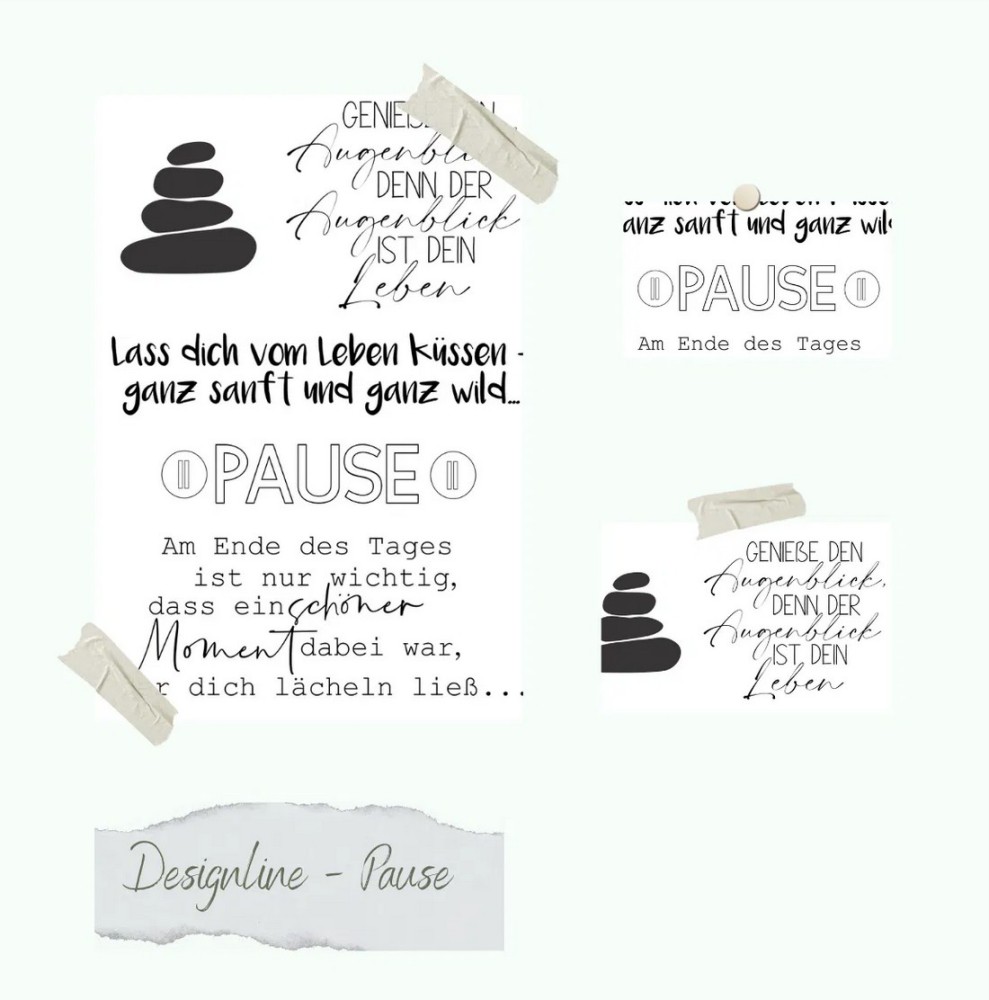 GENIEßE
DENN DER
Augenblick
IST DEIN
Leben
Lass dich vom Leben küssen -
ganz sanft und ganz wild...
PAUSE
Am Ende des Tages
ist nur wichtig,
dass ein schöner
Moment dabei war,
dich lächeln ließ...
anz sanft und ganz wil
PAUSE
Am Ende des Tages
GENIEßE DEN
Augenblick,
DENN DER
Augenblick
IST DEIN
Leben
Designline - Pause